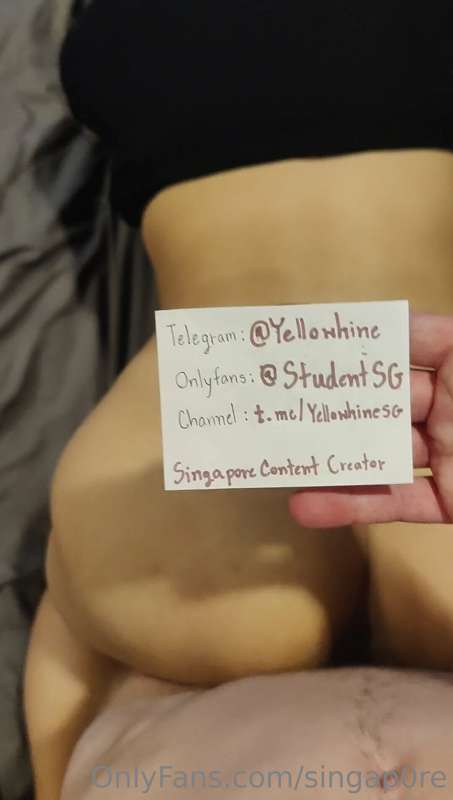 Telegram: @Yellowhine
Onlyfans: @StudentSG
Channel: t.me/YellowhineSG
Singapore Content Creator
OnlyFans.com/singap0re